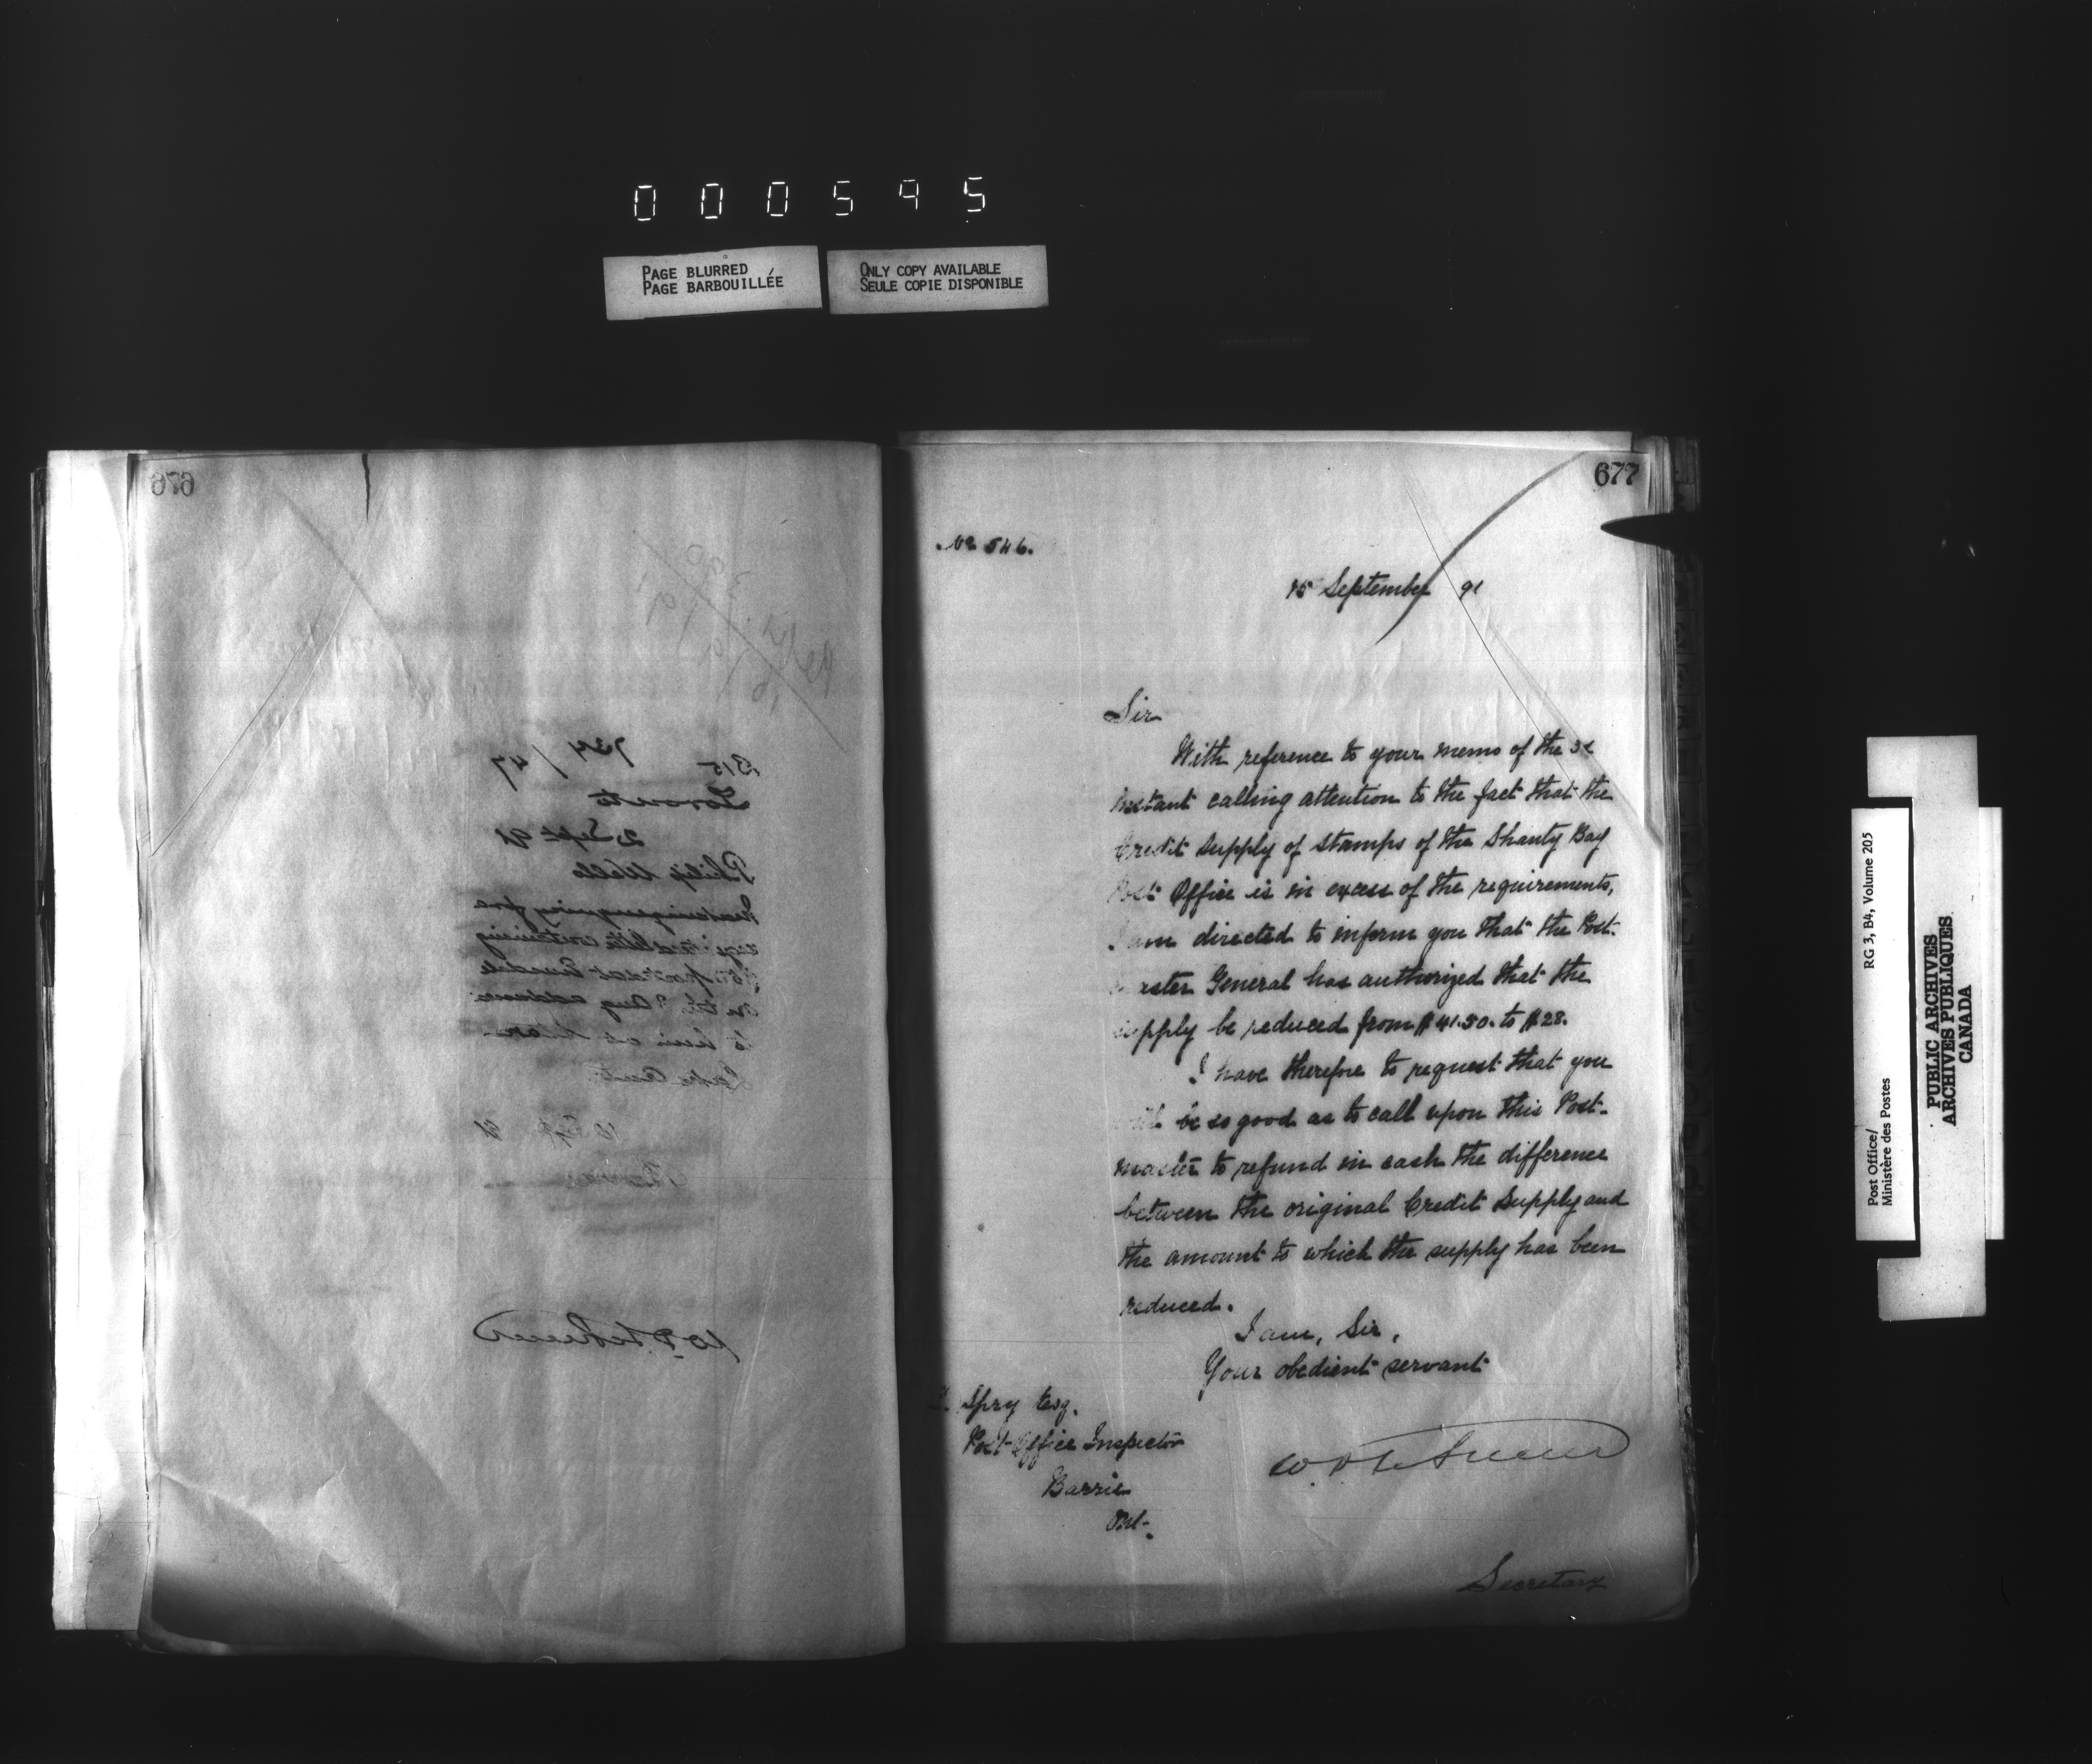 000595
PAGE BLURRED
PAGE BARBOUILLÉE
ONLY COPY AVAILABLE
SEULE COPIE DISPONIBLE
676
B15 734/47
Toronto
2 Sept 91
Philip Wells
on the Aug address
to him at
677
No 546.
15 September 91
Sir
With reference to your memo of the
instant calling attention to the fact that the
Credit supply of stamps of the Shanty Bay
Post Office is in excess of the requirements,
I am directed to inform you that the Post-
master General has authorized that the
supply be reduced from $41.50. to $28.
I have therefore to request that you
will be so good as to call upon this Post-
master to refund in cash the difference
between the original Credit Supply and
the amount to which the supply has been
reduced.
I am, Sir,
Your obedient servant
Spry Esq.
Post-Office Inspector
Barrie
Ont-
Secretary
Post Office/
Ministère des Postes
RG 3, B4, Volume 205
PUBLIC ARCHIVES
ARCHIVES PUBLIQUES
CANADA